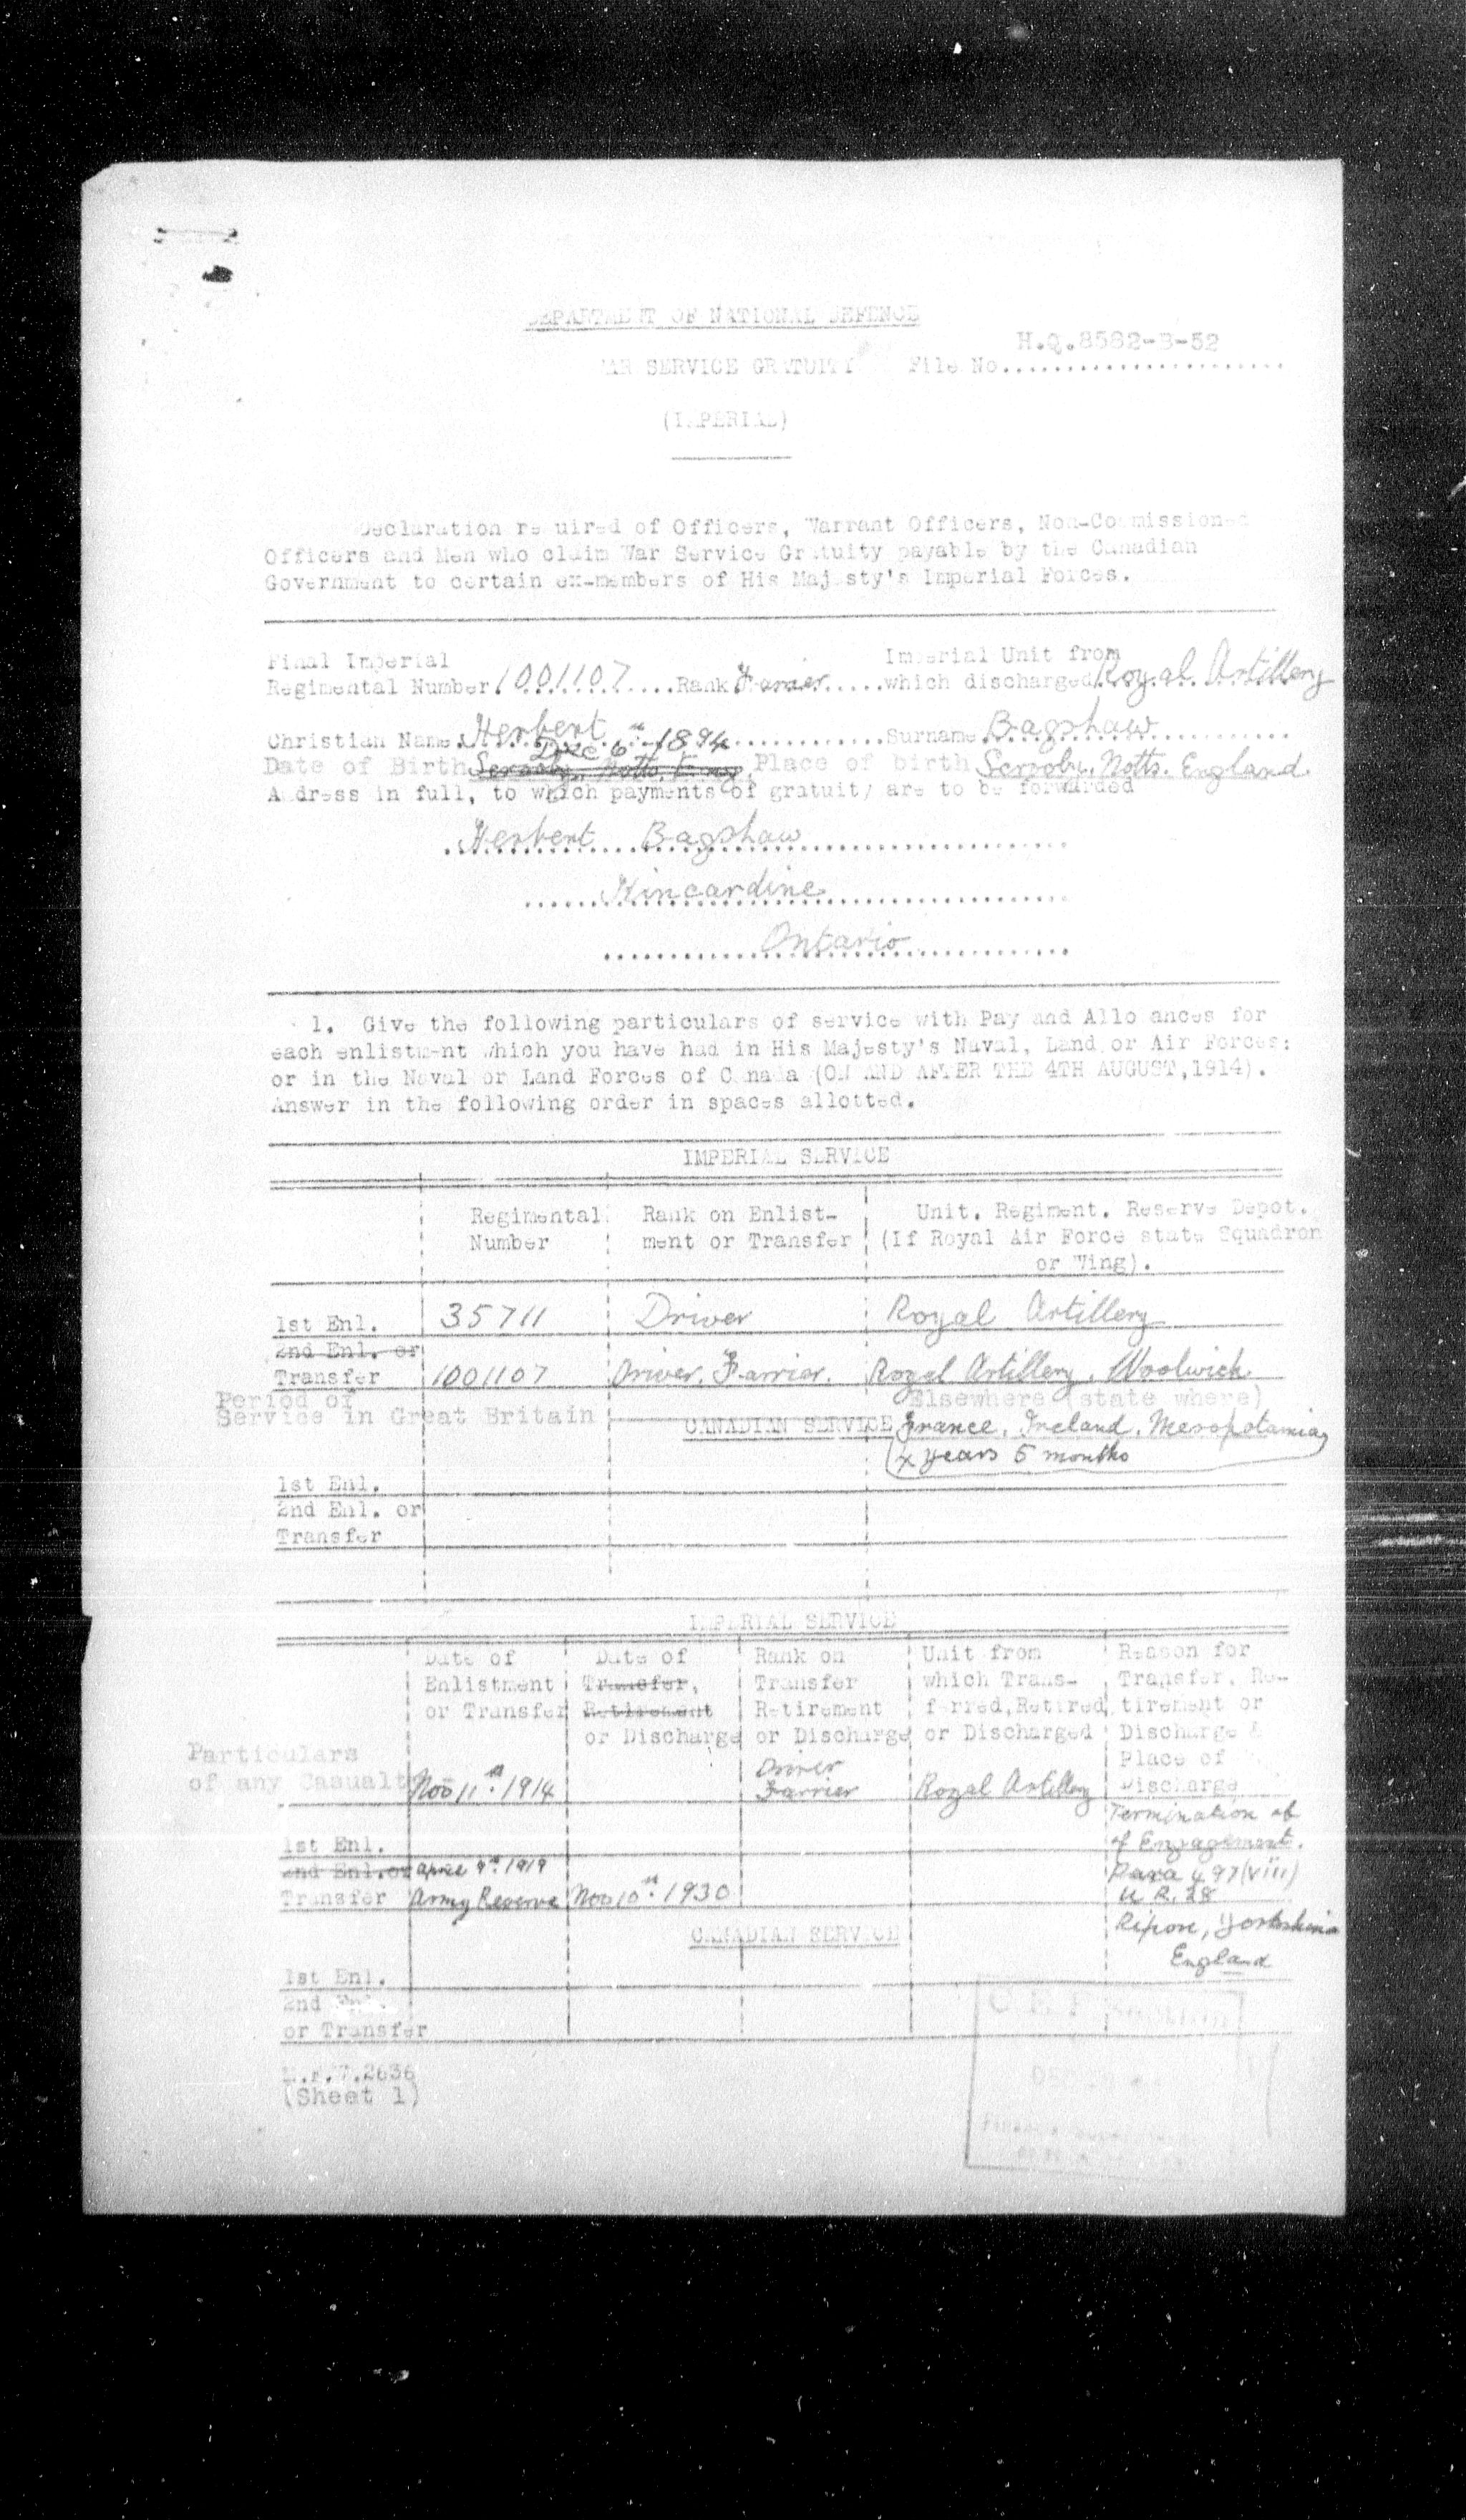 DEPARTMENT OF NATIONAL DEFENCE
H.Q.8582-B-52
WAR SERVICE GRATUITY File No.
(IMPERIAL)
Declaration required of Officers, Warrant Officers, Non-Commissioned
Officers and Men who claim War Service Gratuity payable by the Canadian
Government to certain ex-members of His Majesty's Imperial Forces.
Final Imperial Imperial Unit from
Regimental Number 1001107 Rank Farrier which discharged Royal Artillery
Christian Name Herbert Surname Bagshaw
Dec 6th 1894
Date of Birth Scrooby, Notts. Eng. Place of birth Scrooby, Notts. England.
Address in full, to which payments of gratuity are to be forwarded
Herbert Bagshaw
Kincardine
Ontario
1. Give the following particulars of service with Pay and Allowances for
each enlistment which you have had in His Majesty's Naval, Land or Air Forces:
or in the Naval or Land Forces of Canada (ON AND AFTER THE 4TH AUGUST,1914).
Answer in the following order in spaces allotted.
IMPERIAL SERVICE
Regimental Rank on Enlist- Unit. Regiment. Reserve Depot.
Number ment or Transfer (If Royal Air Force state Squadron
or Wing).
1st Enl. 35711 Driver Royal Artillery
2nd Enl. or
Transfer 1001107 Driver. Farrier. Royal Artillery. Woolwich
Period of Elsewhere (state where)
Service in Great Britain
CANADIAN SERVICE France, Ireland, Mesopotamia
4 years 5 months
1st Enl.
2nd Enl. or
Transfer
IMPERIAL SERVICE
Date of Date of Rank on Unit from Reason for
Enlistment Transfer, Transfer which Trans- Transfer, Re-
or Transfer Retirement Retirement ferred,Retired tirement or
or Discharge or Discharge or Discharged Discharge &
Particulars Place of
of any Casualty Driver Discharge
Nov 11th. 1914 Farrier Royal Artillery
Termination of
1st Enl. of Engagement.
2nd Enl.or April 9th. 1919 Para 497(viii)
Transfer Army Reserve Nov 10th. 1930 K R. 28
CANADIAN SERVICE Ripon, Yorkshire
England
1st Enl.
2nd
or Transfer
M.F.W.2636
(Sheet 1)